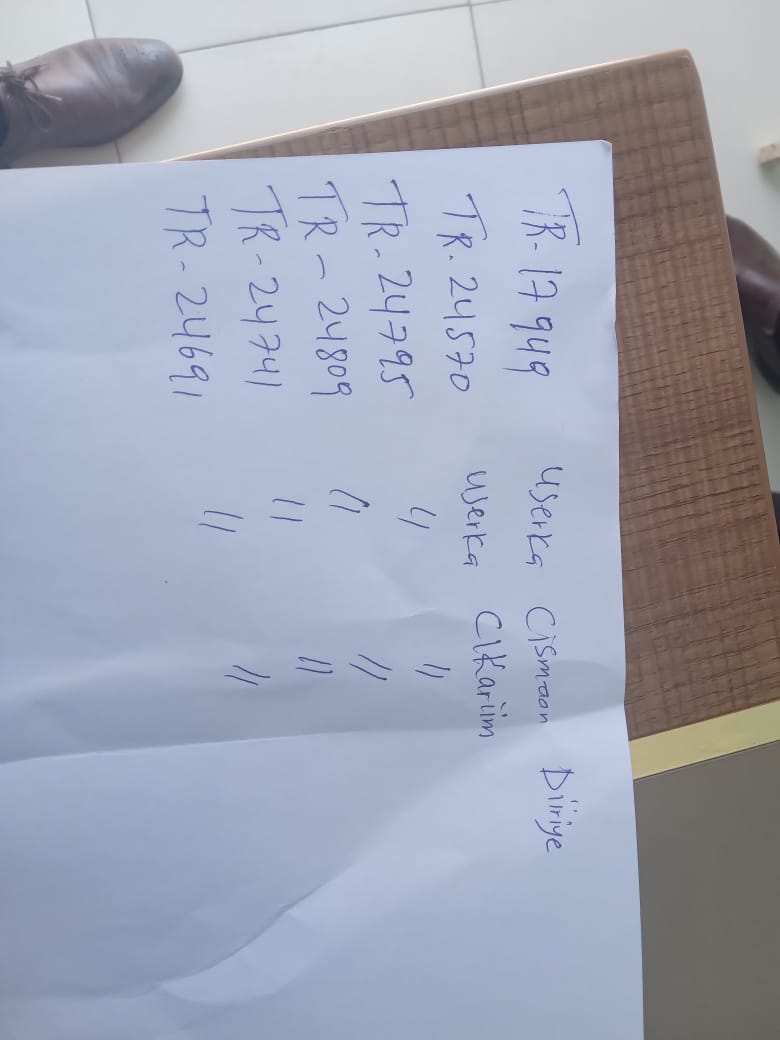 TR-17949 userka Cismaan Diiriye
TR-24570 userka C/Kariim
TR-24795 " "
TR-24809 " "
TR-24741 " "
TR-24691 " "